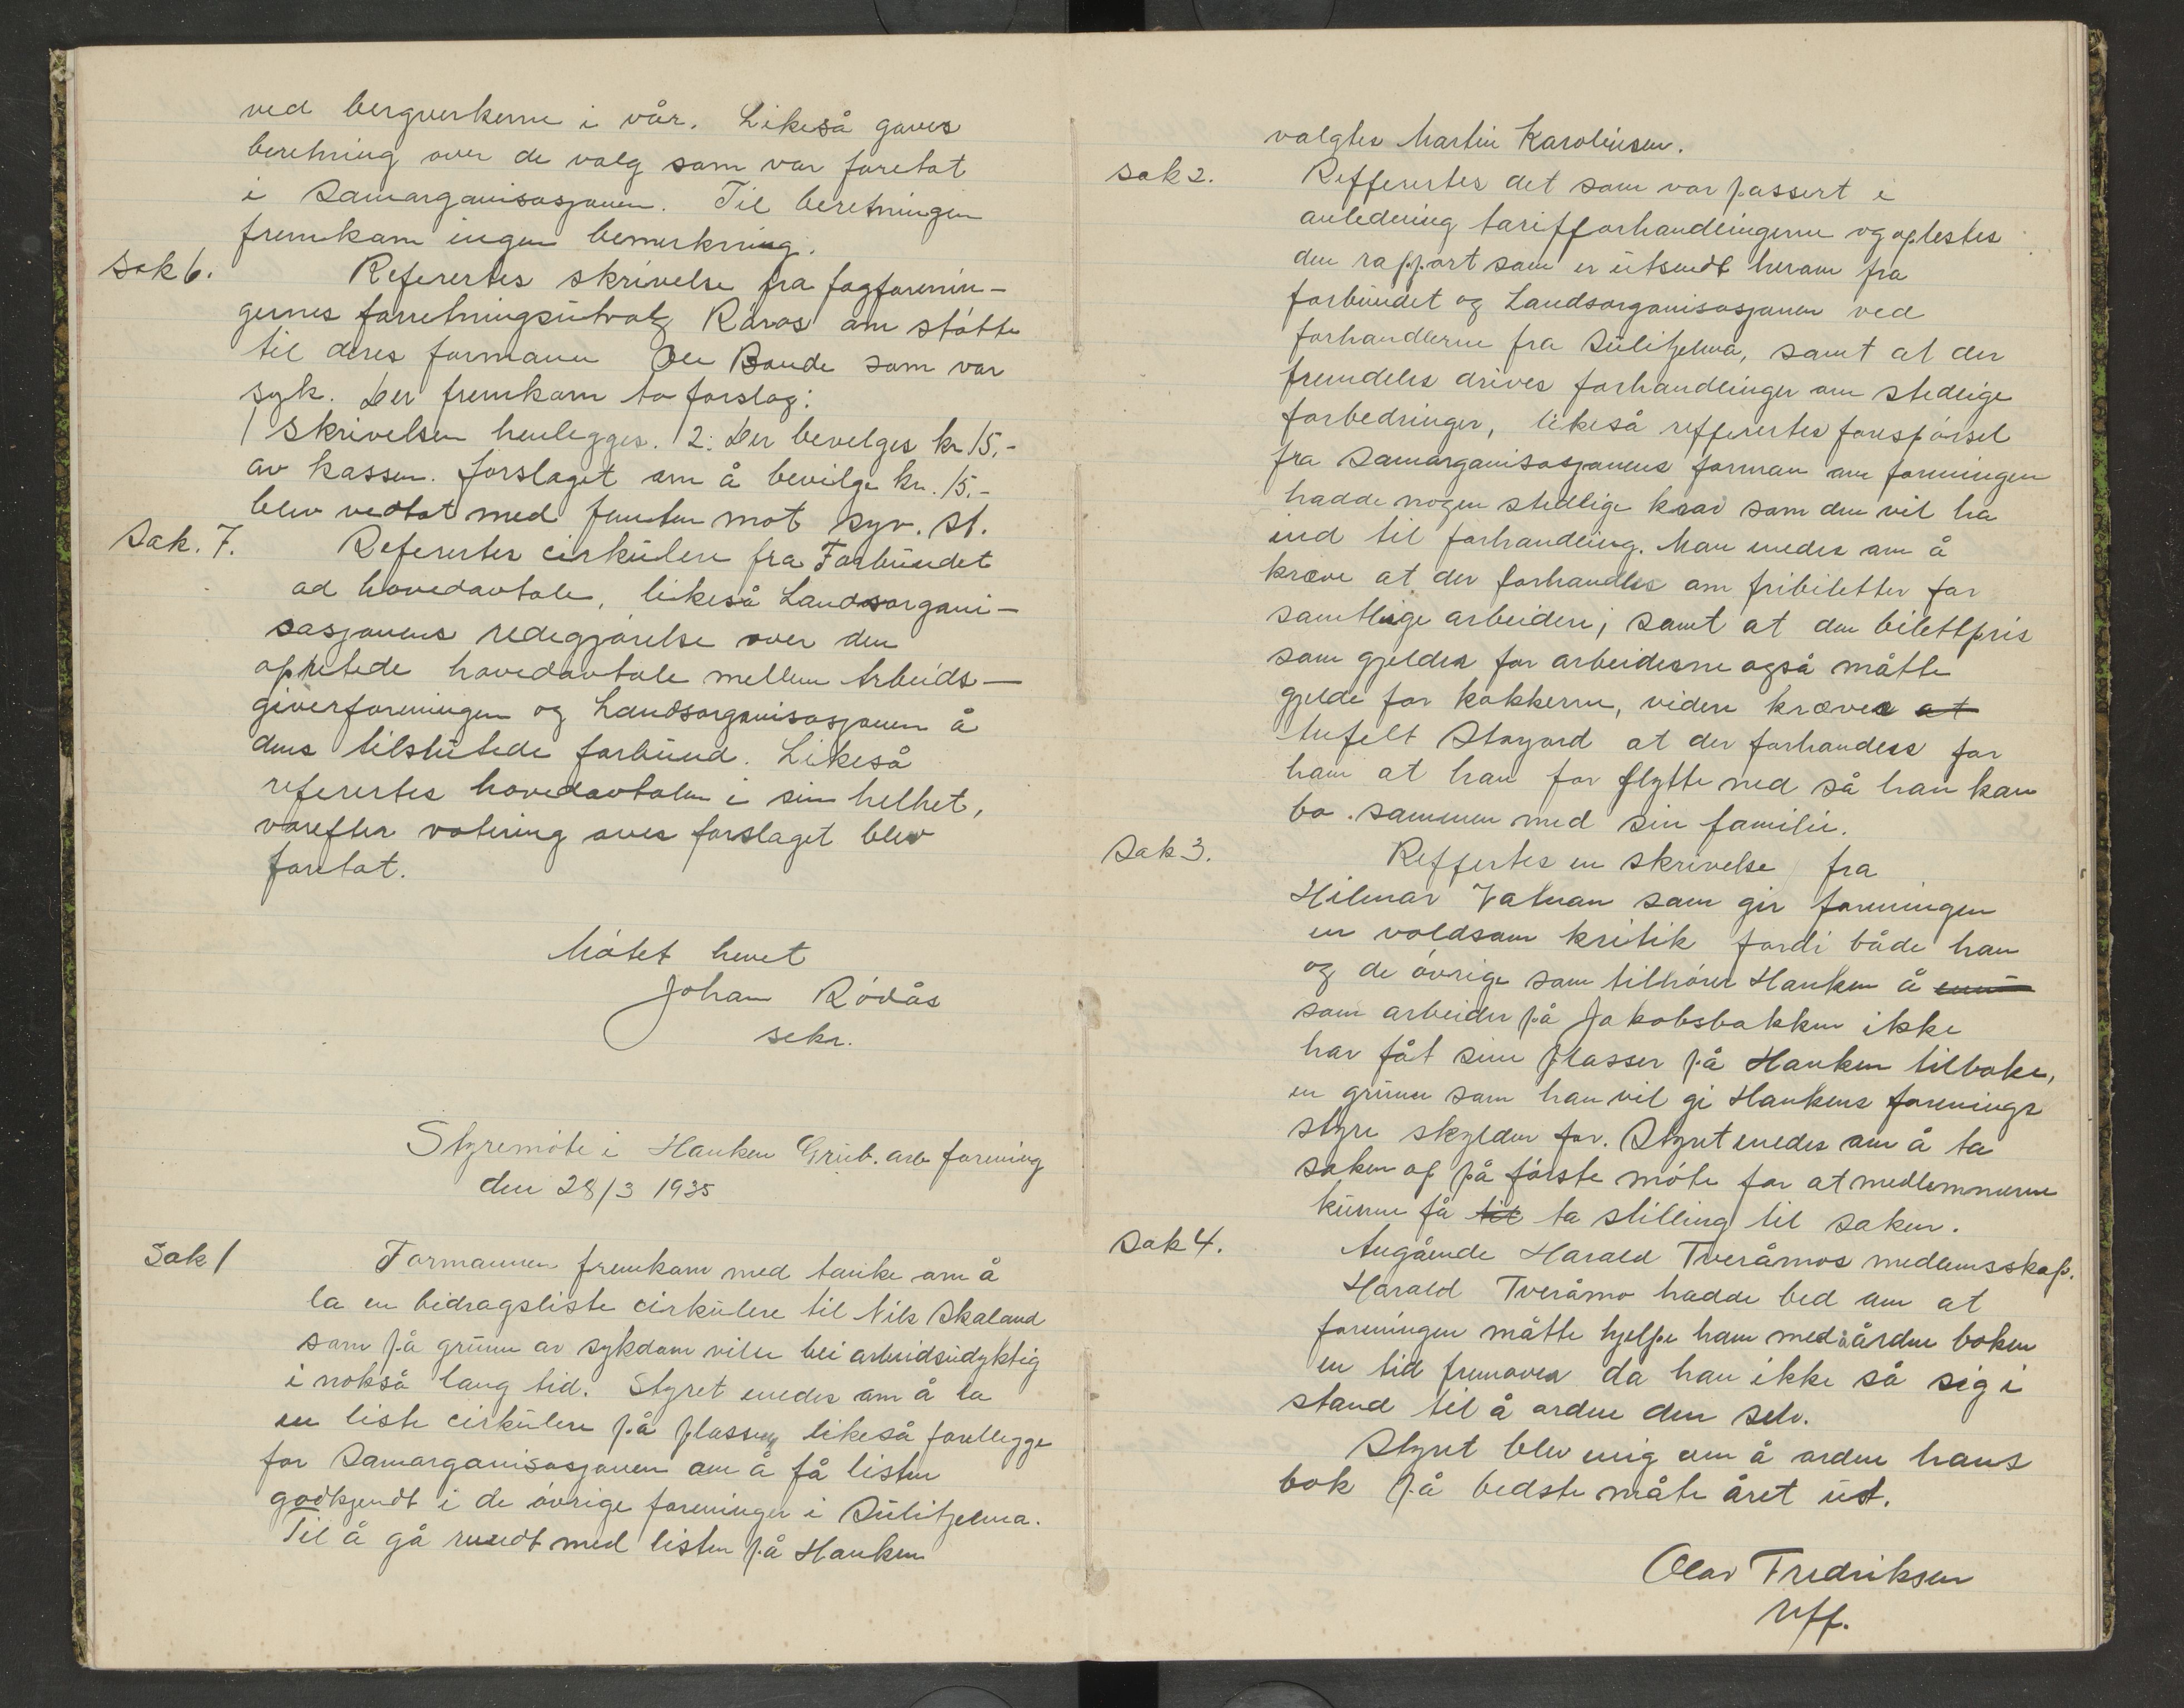 ved bergverkerne i vår. Likeså gaves
beretning over de valg som var foretat
i Samorganisasjonen. Til beretningen
fremkom ingen bemerkning.
Sak 6. Referertes skrivelse fra fagforenin-
gernes forretningsutvalg Røros om støtte
til deres formann Ole Bonde som var
syk. Der fremkom to forslag:
1 Skrivelsen henlegges. 2: Der bevelges kr 15,-
av kassen. Forslaget om å bevilge kr. 15.-
blev vedtat med femten mot syv. st.
Sak. 7. Referertes cirkulere fra Forbundet
ad hovedavtale, likeså Landsorgani-
sasjonens redegjørelse over den
opretede hovedavtale mellem Arbeids-
giverforeningen og Landsorganisasjonen å
dens tilslutede forbund. Likeså
referertes hovedavtalen i sin helhet,
vorefter votering over forslaget blev
foretat.
Møtet hevet
Johan Rødås
sekr.
Styremøte i Hanken Grub. arb forening
den 28/3 1935
Sak 1 Formannen fremkom med tanke om å
la en bidragsliste cirkulere til Nils Skaland
som på grunn av sykdom vilde bli arbeidsudyktig
i nokså lang tid. Styret enedes om å la
en liste cirkulere på plassen likeså forelegge
for Samorganisasjonen om å få listen
godkjendt i de øvrige foreninger i Sulitjelma.
Til å gå rundt med listen på Hanken
valgtes Martin Karolinsen.
Sak 2. Reffererte det som var passert i
anledning tarifforhandlingerne og oplestes
den rapport som er utsendt herom fra
forbundet og Landsorganisasjonen ved
forhandlerne fra Sulitjelma, samt at der
fremdeles drives forhandlinger om stedlige
forbedringer, likeså reffererte forespørsel
fra Samorganisasjonens forman om foreningen
hadde nogen stedlige krav som den vil ha
ind til forhandling. Man enedes om å
kræve at der forhandles om fribiletter for
samtlige arbeidere; samt at den bilettpris
som gjelder for arbeiderne også måtte
gjelde for kokkerne, videre kræves at
Anfelt Storjord at der forhandles for
ham at han for flytte ned så han kan
bo sammen med sin familie.
Sak 3. Reffertes en skrivelse fra
Hilmar Vatnan som gir foreningen
en voldsom kritik fordi både han
og de øvrige som tilhører Hanken å
som arbeider på Jakobsbakken ikke
har fåt sine plasser på Hanken tilbake,
en grunn som han vil gi Hankens forenings
styre skylden for. Styret enedes om å ta
saken op på første møte for at medlemmerne
kunne få til ta stilling til saken.
Sak 4. Angående Harald Tveråmos medlemsskap.
Harald Tveråmo hadde bed om at
foreningen måtte hjelpe ham med å årdne boken
en tid fremover da han ikke så sig i
stand til å ordne den selv.
Styret blev enig om å ordne hans
bok på bedste måte året ut.
Olav Fredriksen
Reff.